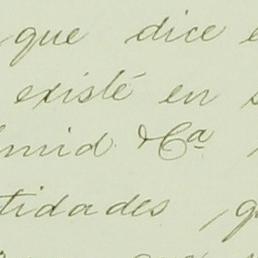 que dice e
existé en s
mid &Cª
tidades, q